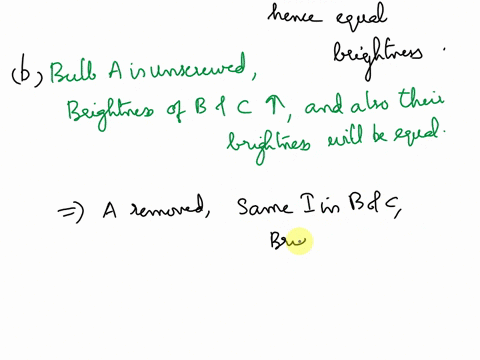 hence equal
brightness .
(b) Bulb A is unscrewed,
Brightness of B & C ↑, and also their
brightness will be equal.
=) A removed, Same I in B & C,
Bri